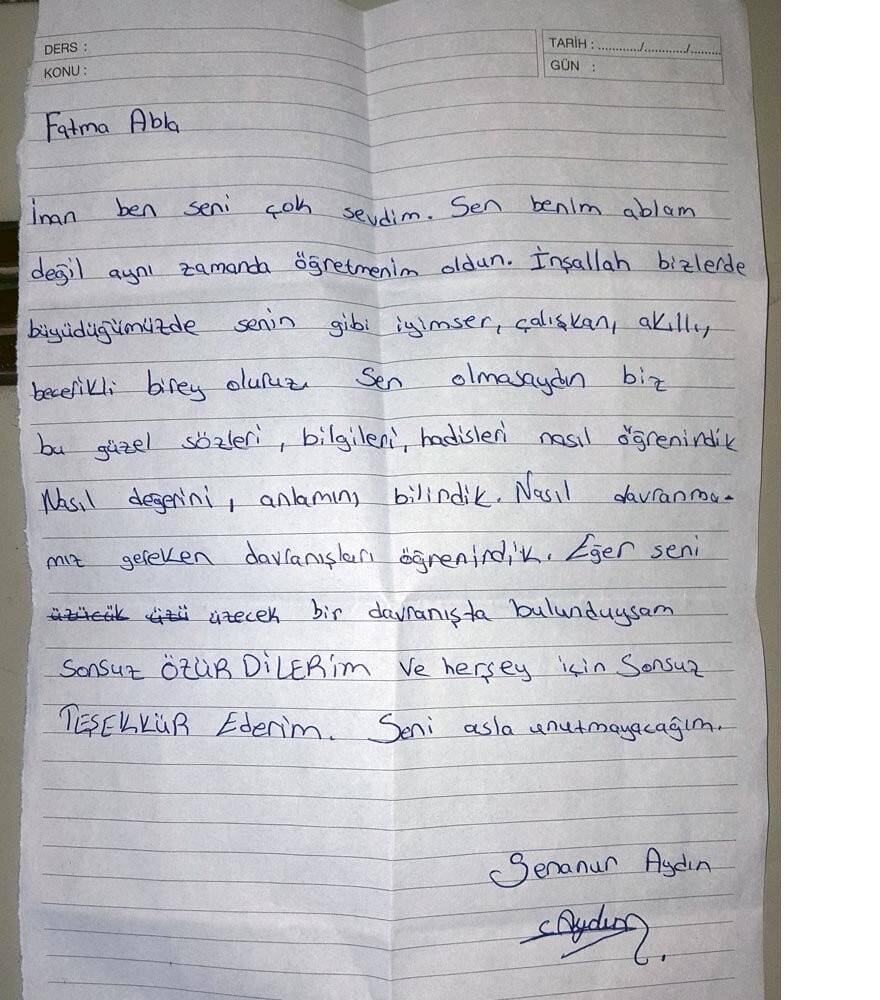 DERS :
KONU :
TARİH : ............/............/.........
GÜN :
Fatma Abla
İnan ben seni çok sevdim. Sen benim ablam
değil aynı zamanda öğretmenim oldun. İnşallah bizlerde
büyüdüğümüzde senin gibi iyimser, çalışkan, akıllı,
becerikli birey oluruz. Sen olmasaydın biz
bu güzel sözleri, bilgileri, hadisleri nasıl öğrenirdik
Nasıl değerini, anlamını bilirdik. Nasıl davranma-
mız gereken davranışları öğrenirdik. Eğer seni
üzücük üzü üzecek bir davranışta bulunduysam
Sonsuz ÖZÜR DİLERİM ve herşey için Sonsuz
TEŞEKKÜR Ederim. Seni asla unutmayacağım.
Senanur Aydın
SAydın